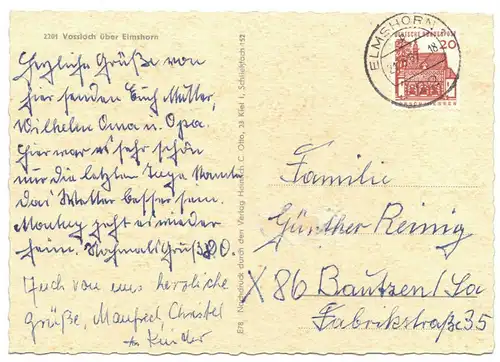 2201 Vossloch über Elmshorn
Herzliche Grüße von
hier senden Euch Mutter,
Wilhelm Oma u. Opa.
Hier war es sehr schön
nur die letzten Tage konnte
das Wetter besser sein.
Montag geht es wieder
heim. Nochmals Grüße O.
Auch von uns herzliche
Grüße, Manfred, Christel
Kinder
Nachdruck durch den Verlag Heinrich C. Otto, 23 Kiel 1, Schließfach 152
ELMSHORN
18
DEUTSCHE BUNDESPOST
20
Familie
Günther Reinig
X 86 Bautzen/Sa
Fabrikstraße 35